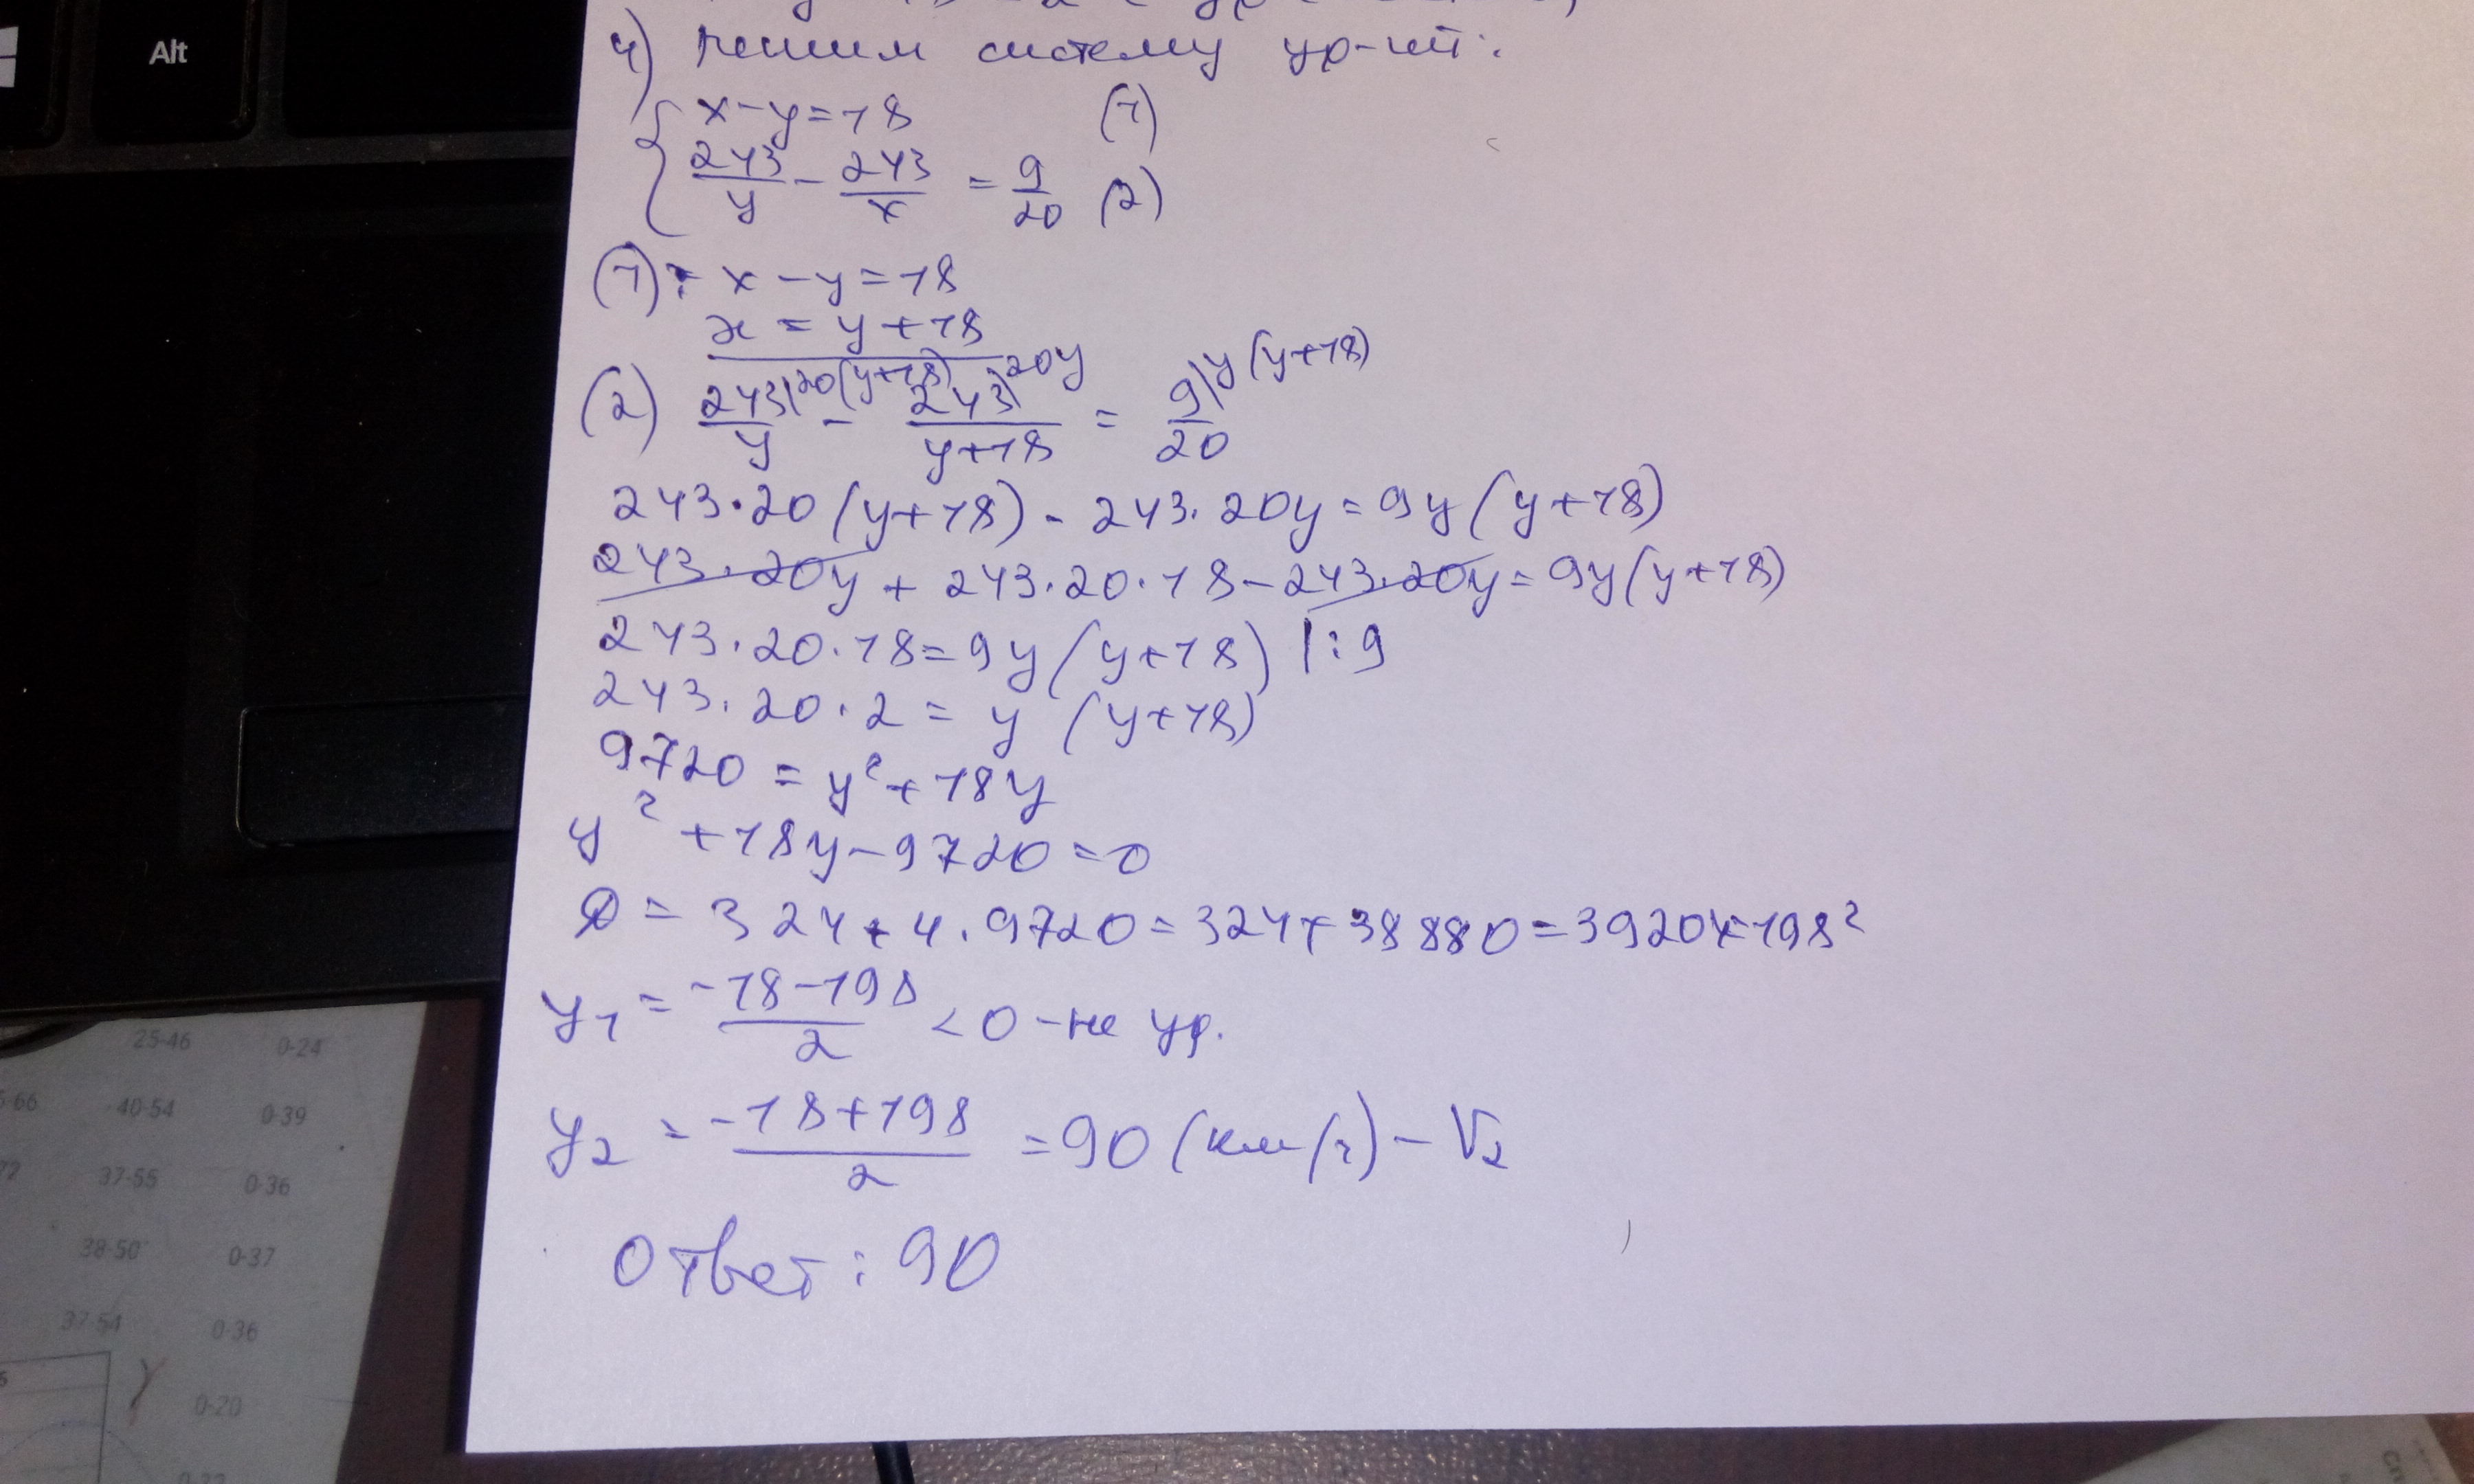 Alt
4) решим систему ур-ий:
{ x-y=18 (1)
243/y - 243/x = 9/20 (2)
(1): x-y=18
x = y+18
(2) 243\20(y+18) / y - 243\20y / y+18 = 9\y(y+18) / 20
243·20(y+18) - 243·20y = 9y(y+18)
243·20y + 243·20·18 - 243·20y = 9y(y+18)
243·20·18 = 9y(y+18) |:9
243·20·2 = y(y+18)
9720 = y²+18y
y²+18y-9720=0
D = 324+4·9720=324+38880=39204=198²
y₁ = -18-198 / 2 <0 - не ур.
y₂ = -18+198 / 2 =90 (км/ч) - V₂
Ответ: 90
25-46 0-24
40-54 0-39
37-55 0-36
38-50 0-37
37-54 0-36
0-20